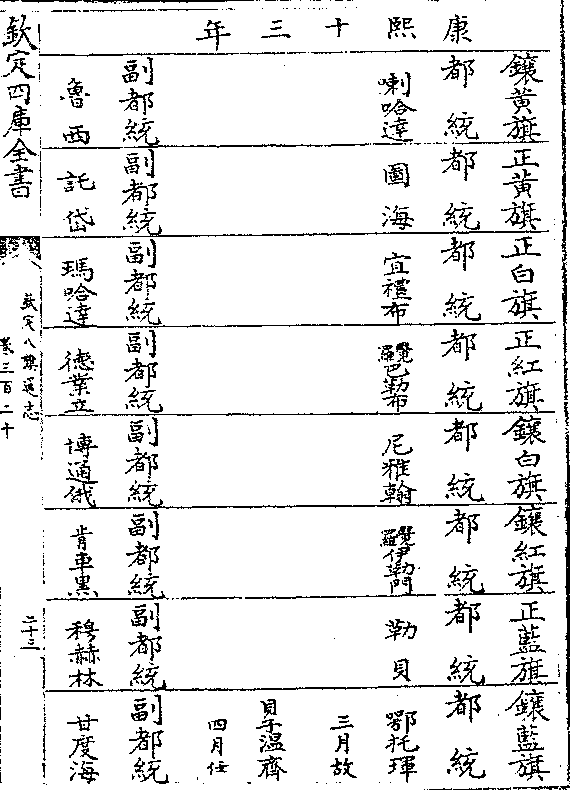 康熙十三年
鑲黃旗 正黃旗 正白旗 正紅旗 鑲白旗 鑲紅旗 正藍旗 鑲藍旗
都統 都統 都統 都統 都統 都統 都統 都統
喇哈達 圖海 宜禮布 覺羅巴勒布 尼雅翰 覺羅伊勒門 勒貝 鄂托琿
三月故
貝子溫齊
四月任
副都統 副都統 副都統 副都統 副都統 副都統 副都統 副都統
魯西 託岱 瑪哈達 德業立 博通俄 肯車黑 穆赫林 甘度海
欽定四庫全書
欽定八旗通志
卷三百二十
二十三